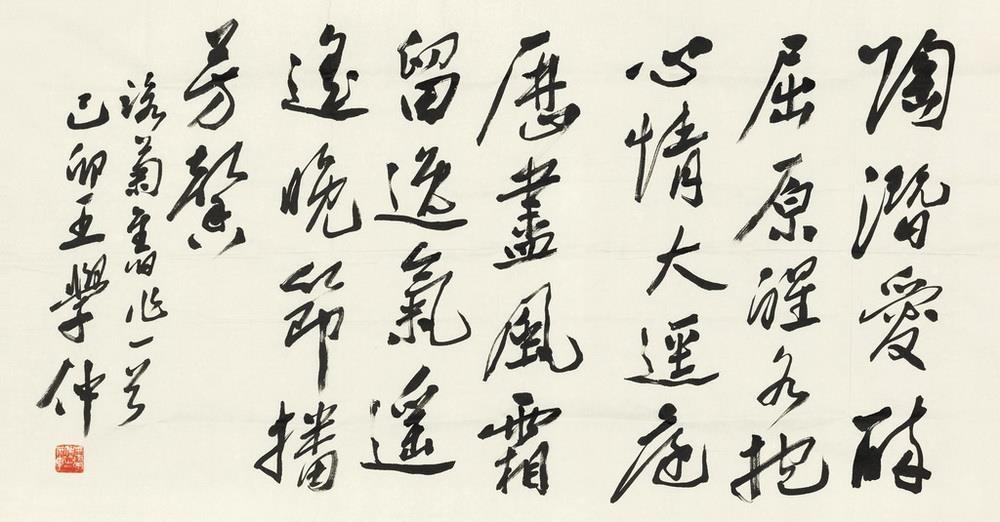 陶潛愛醉
屈原醒各抱
心情大逕庭
歷盡風霜
留逸氣遙
遙晚節播
芳馨
詠菊舊作一首
己卯王學仲